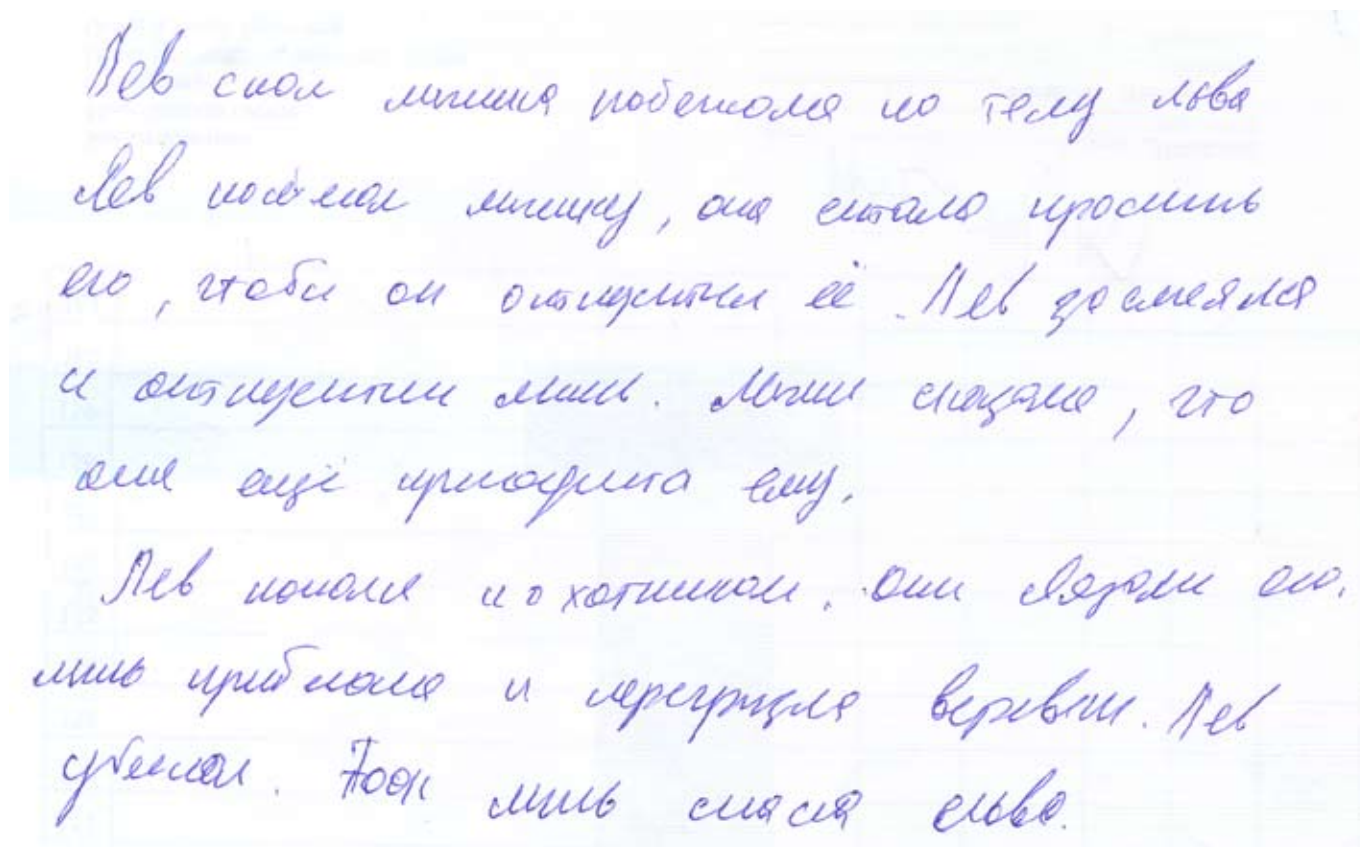 Лев спал мышка побежала по телу льва
Лев поймал мышку, она стала просить
его, чтобы он отпустил её. Лев засмеялся
и отпустил мышь. Мышь сказала, что
она ещё пригодится ему.
Лев попался к охотникам. Они связали его.
мышь прибежала и перегрызла веревки. Лев
убежал. мышь спасла льва.